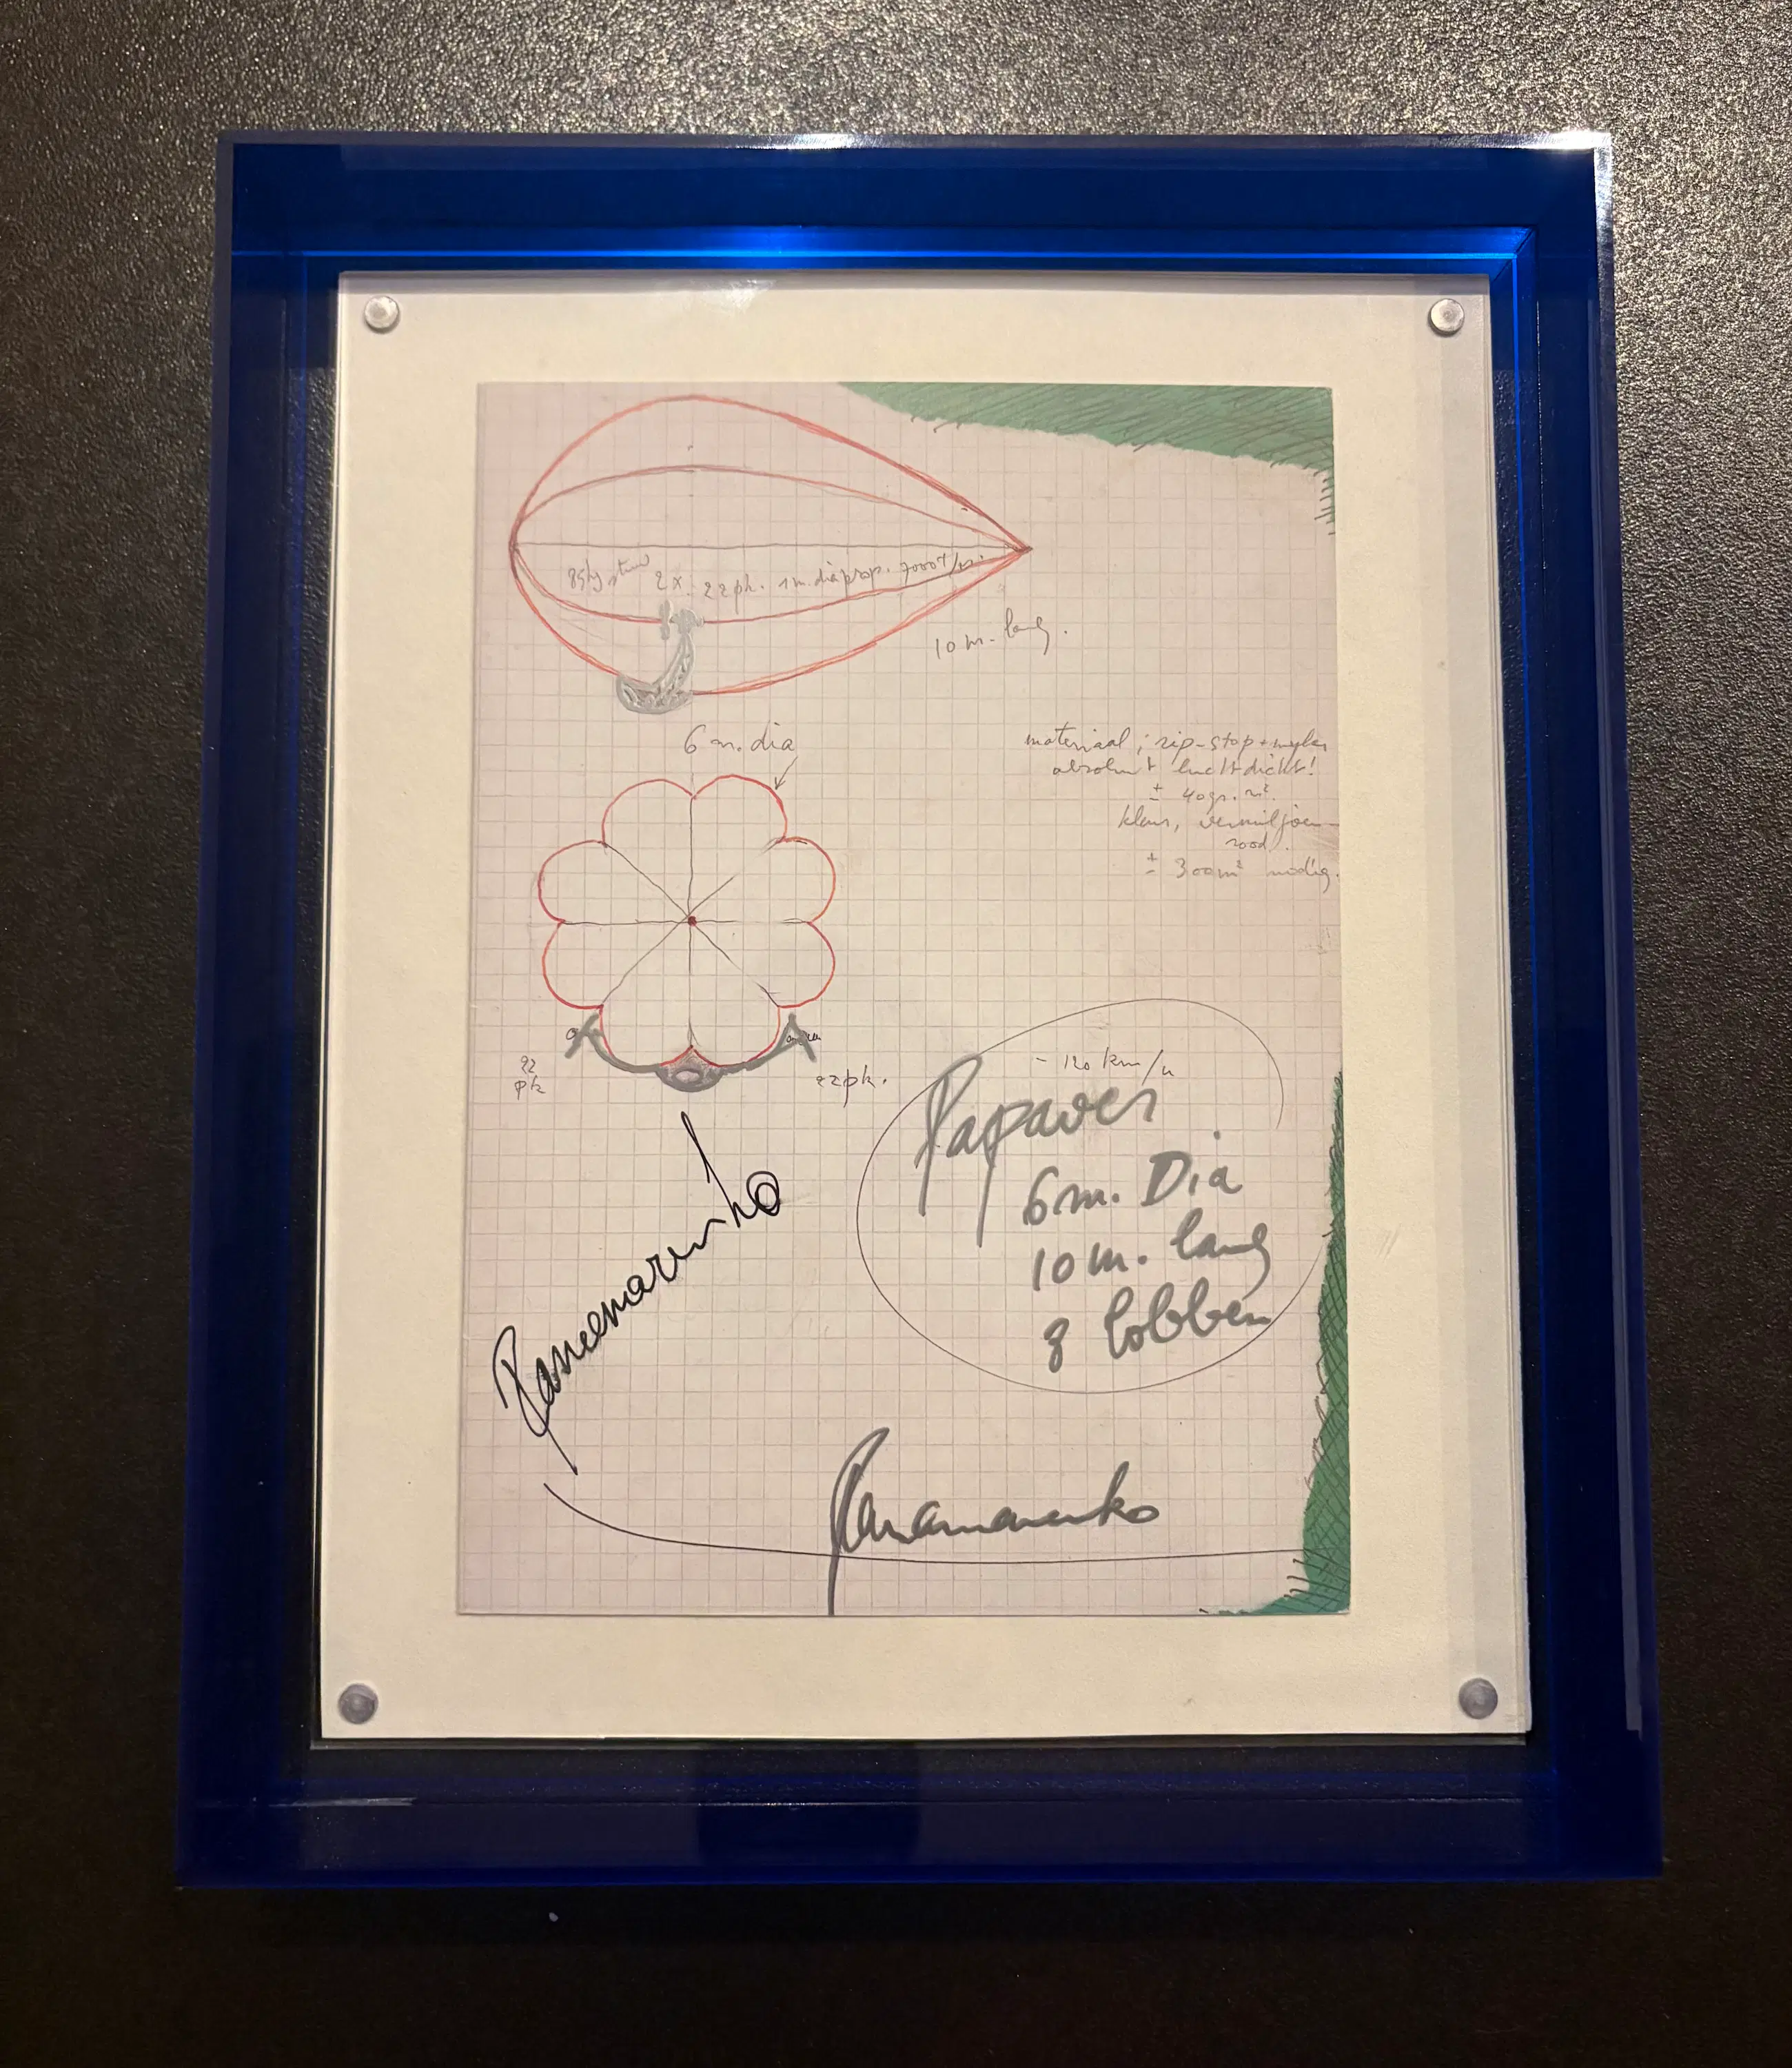 85kg stuw 2 x 22pk. 1 m. dia prop. 7000 t/m.
10 m. lang.
6 m. dia
materiaal ; rip-stop + mylar
absoluut luchtdicht!
± 40 gr. m².
kleur, vermiljoen
rood.
± 300 m² nodig.
22
pk
22pk.
- 120 km/u
Papaver
6 m. Dia
10 m. lang
8 lobben
Panamarenko
Panamarenko